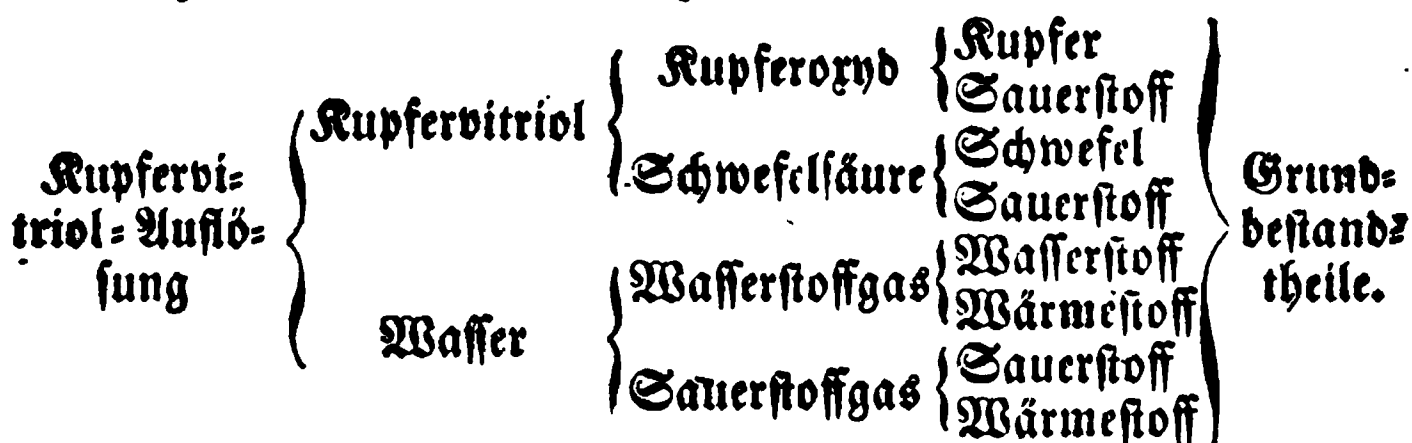 Kupfervi=
triol=Auflö=
sung
Kupfervitriol
Wasser
Kupferoxyd
Schwefelsäure
Wasserstoffgas
Sauerstoffgas
Kupfer
Sauerstoff
Schwefel
Sauerstoff
Wasserstoff
Wärmestoff
Sauerstoff
Wärmestoff
Grund=
bestand=
theile.